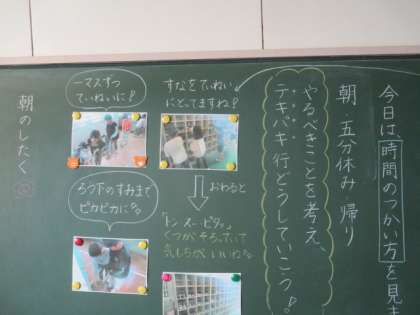 今日は、時間のつかい方を見
朝・五分休み・帰り
やるべきことを考え、
テキパキ行どうしていこう!
すなをていねい
にとってますね!
おわると
「トン、スー、ピタッ」
くつがそろっていて
気もちがいいね。
一マスずつ
ていねいに!
ろう下のすみまで
ピカピカにな。
朝のしたく